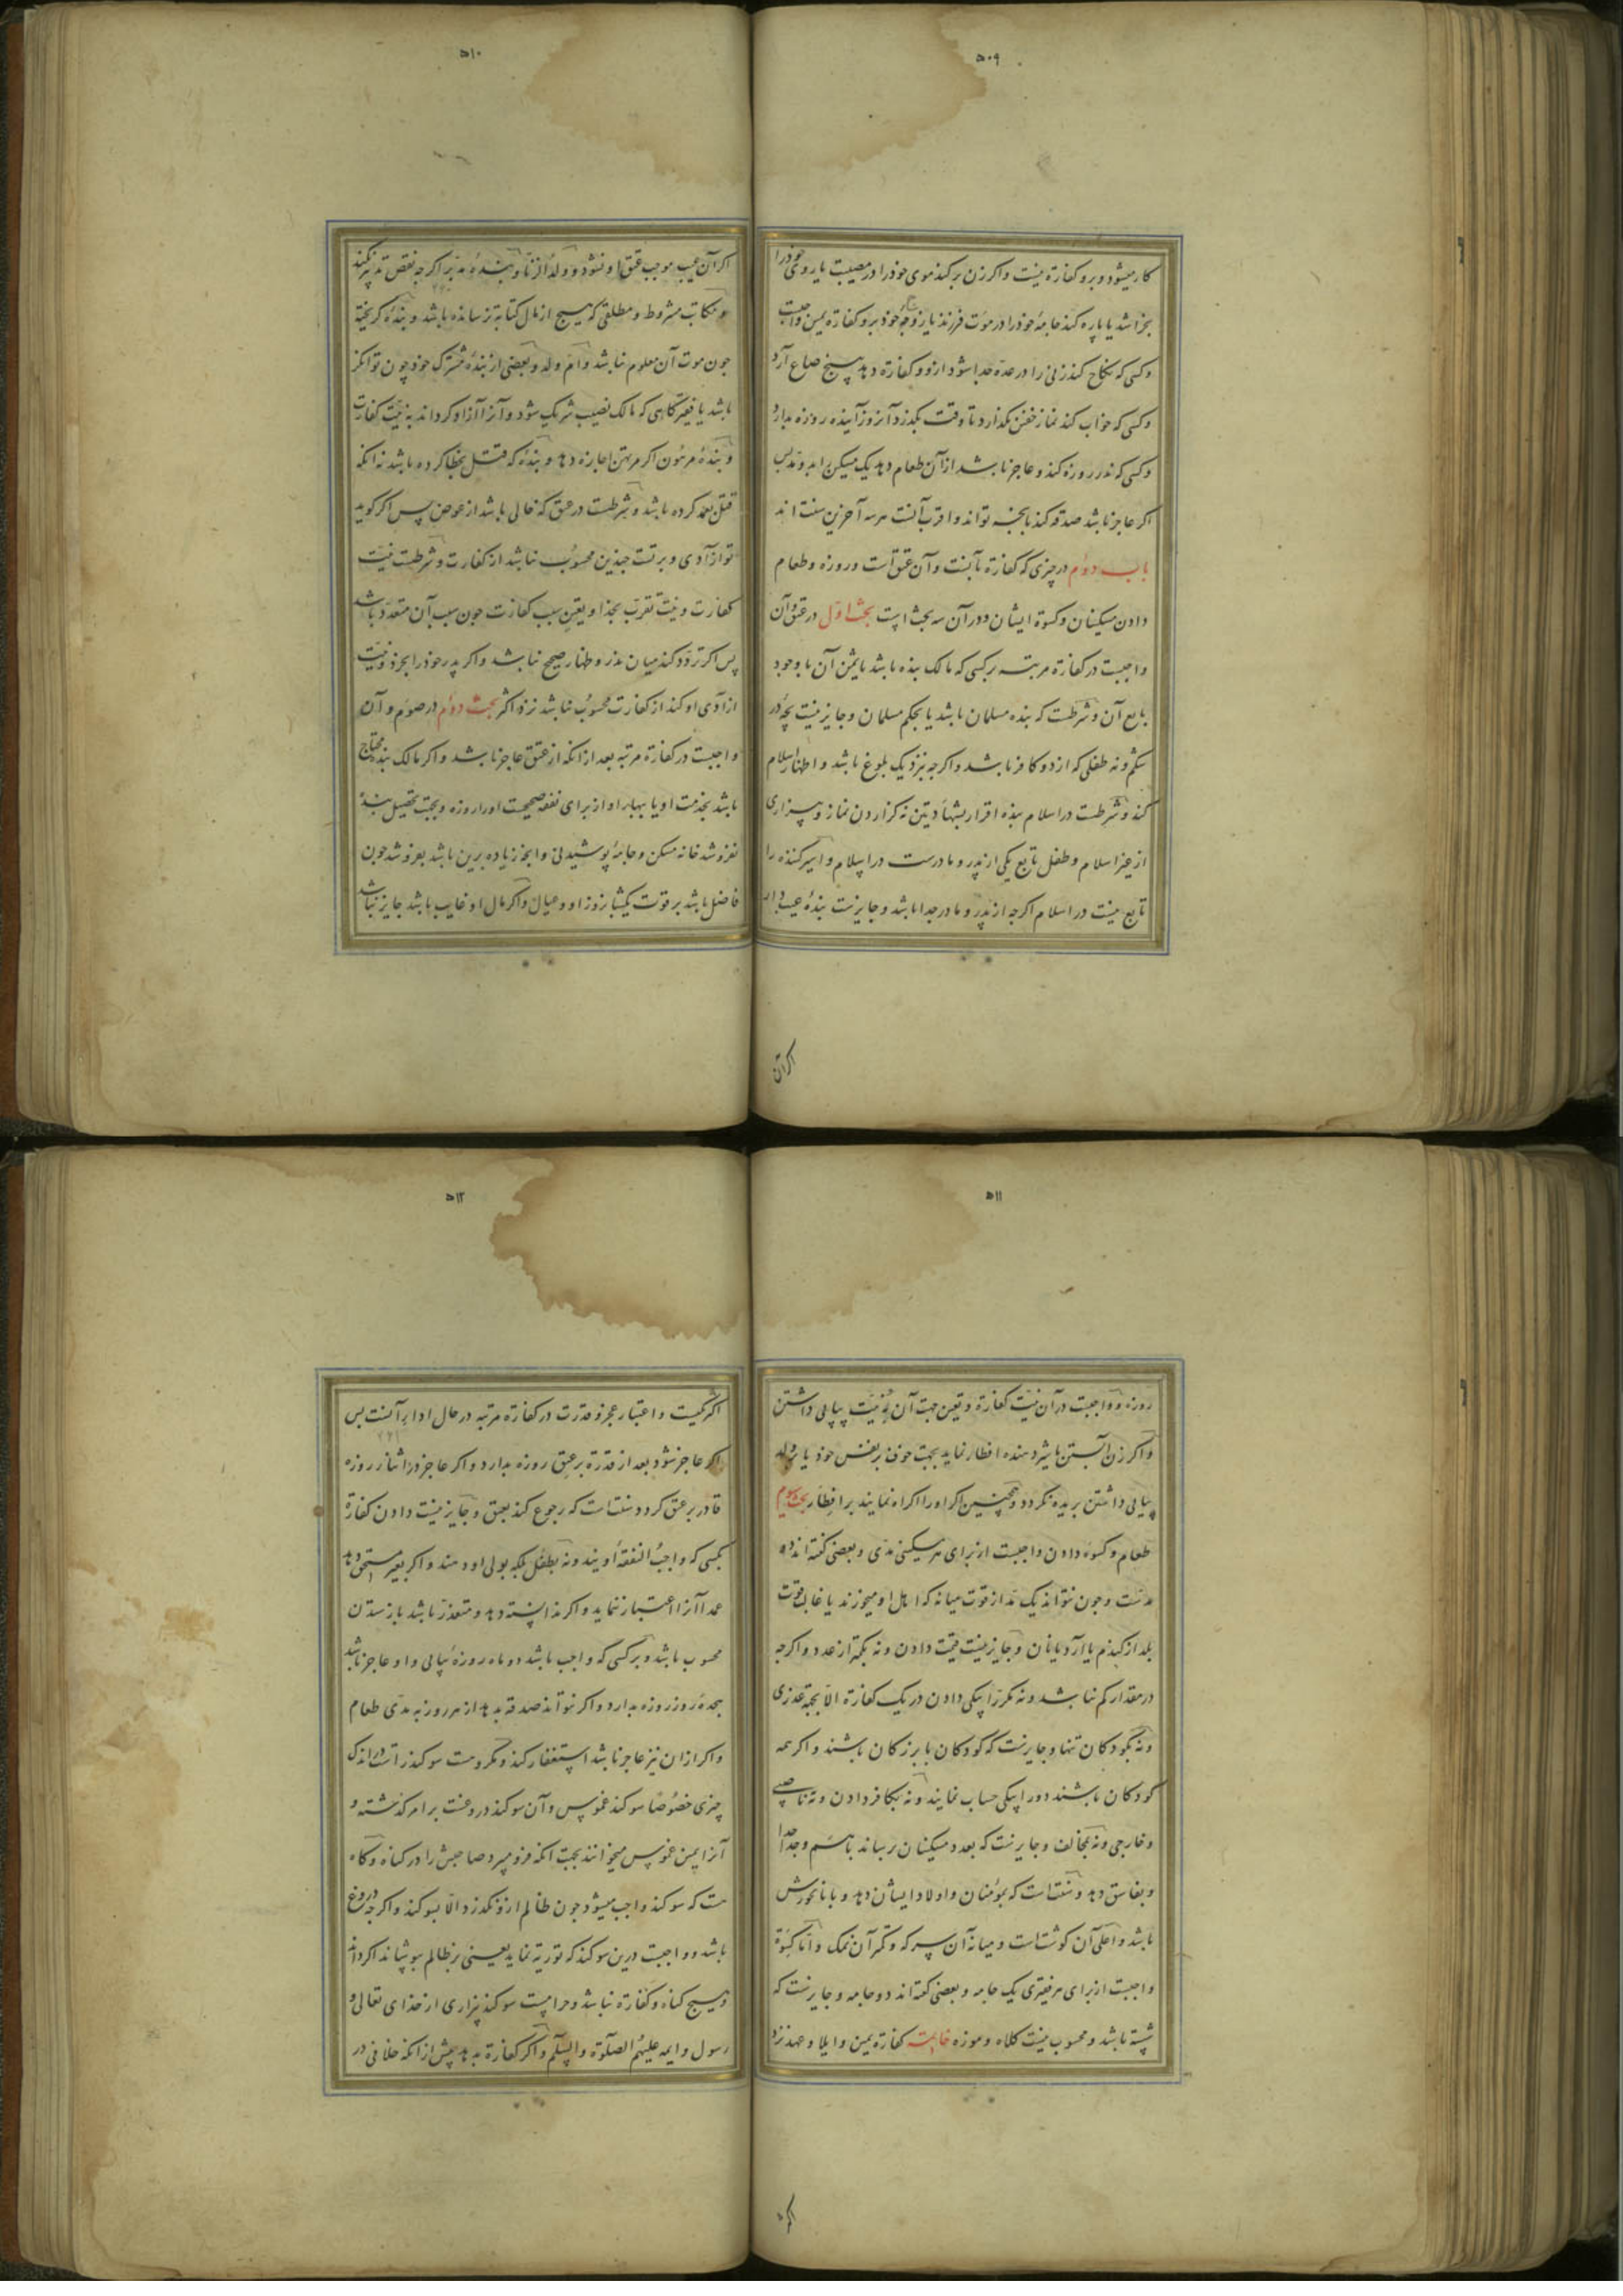 ۵۰۹
کار میشود و برو کفارة نیست و اکر زن برکند موی خوذ را در مصیبت یا روی خوذ را
بخراشد یا پاره کند جامهٔ خوذ را در موت فرزند یا زوجهٔ خوذ برو کفارة یمین واجبست
و کسی که نکاح کند زنی را در عدّه جدا شود ازو و کفارة دهد پنج صاع آرد
و کسی که خواب کند نماز خفتن نکذارد تا وقت بکذرد آنروز آینده روزه بدارد
و کسی که نذر روزه کند و عاجز باشد از آن طعام دهد یک مسکین را بدو مد پس
اکر عاجز باشد صدقه کند بانچه تواند و اقرب آنست هر سه آخرین سنت اند
باب دوم در چیزی که کفارة بآنست و آن عتق است و روزه و طعام
دادن مسکینان و کسوة ایشان و در آن سه بحث است بحث اول در عتق و آن
واجبست در کفارة مرتبه بر کسی که مالک بنده باشد یا ثمن آن با وجود
بایع آن و شرطست که بنده مسلمان باشد یا بحکم مسلمان و جایز نیست بچه در
شکم و نه طفلی که از دو کافر باشد و اکرچه بنزدیک بلوغ باشد و اظهار اسلام
کند و شرطست در اسلام بنده اقرار بشهادتین نه کزاردن نماز و بیزاری
از غیر اسلام و طفل تابع یکی از پدر و مادرست در اسلام و اسیر کننده را
تابع نیست در اسلام اکرچه از پدر و مادر جدا باشد و جایزست بندهٔ عیب دار
اکر آن
۵۱۰
اکر آن عیب موجب عتق او نشود و ولد الزنا و بندهٔ مدبر اکرچه نقض تدبیر نکند
و مکاتب مشروط و مطلقی که هیچ از مال کتابة نرسانده باشد و بندهٔ کریخته
چون موت آن معلوم نباشد و ام ولد و بعضی از بندهٔ مشترک خوذ چون توانکر
باشد یا فقیر کاهی که مالک نصیب شریک شود و آنرا آزاد کرداند به نیت کفارت
و بندهٔ مرهون اکر مرتهن اجازه دهد و بندهٔ که قتل بخطا کرده باشد نه انکه
قتل بعمد کرده باشد و شرطست در عتق که خالی باشد از عوض پس اکر کوید
تو آزادی و برتست چندین محسوب نباشد از کفارت و شرطست نیّت
کفارت و نیت تقرب بخدا و یقین سبب کفارت چون سبب آن متعدد باشد
پس اکر تردد کند میان نذر و ظهار صحیح نباشد و اکر پدر خوذ را بخرذ و نیت
آزادی او کند از کفارت محسوب نباشد نزد اکثر بحث دوم در صوم و آن
واجبست در کفارة مرتبه بعد از انکه از عتق عاجز باشد و اکر مالک بنده محتاج
باشد بخدمت او یا ببهاء او از برای نفقه صحیحست اورا روزه و بجهت تحصیل بنده
نفروشد خانه مسکن و جامهٔ پوشیدنی و انچه زیاده برین باشد بفروشد چون
فاضل باشد بر قوت یکشبانروز او و عیال و اکر مال او غایب باشد جایز نباشد
۵۱۱
روزه و واجبست در آن نیت کفارة و تعین جهت آن نه نیت پیاپی داشتن
و اکر زن آبستن یا شیر دهنده افطار نماید بجهت خوف بر نفس خوذ یا بر ولد
پیاپی داشتن بریده نکردد و همچنین اکر اورا اکراه نمایند بر افطار بحث سوم
طعام و کسوه دادن واجبست از برای هر مسکینی مدی و بعضی کفته اند دو
مدست و چون نتواند یک مد از قوت میانه که اهل او میخورند یا غالب قوت
بلد از کندم یا آرد یا نان و جایز نیست قیمت دادن و نه بکمتر از عدد و اکرچه
در مقدار کم نباشد و نه مکرر ا بیکی دادن در یک کفارة الا بجهة عذری
و نه بکودکان تنها و جایزست که کودکان با بزرکان باشند و اکر همه
کودکان باشند دو را بیکی حساب نمایند و نه بکافر دادن و نه ناصبی
و خارجی و نه بمخالف و جایزست که بعدد مسکینان رساند با هم و جدا جدا
و بفاسق دهد و سنتست که بمؤمنان و اولاد ایشان دهد و با نانخورش
باشد و اعلی آن کوشتست و میانه آن سرکه و کمتر آن نمک و اما کسوة
واجبست از برای هر فقیری یک جامه و بعضی کفته اند دو جامه و جایزست که
شسته باشد و محسوب نیست کلاه و موزه خاتمت کفارة یمین و ایلا و عهد نزد
۵۱۲
اکثر یکیست و اعتبار عجز و قدرت در کفارة مرتبه در حال ادا بر آنست پس
اکر عاجز شود بعد از قدرة بر عتق روزه بدارد و اکر عاجز در اثناء روزه
قادر بر عتق کردد سنتست که رجوع کند بعتق و جایز نیست دادن کفارة
بکسی که واجب النفقه أویند و نه بطفل بلکه بولی او دهند و اکر بغیر مستحق دهد
عمداً آنرا اعتبار ننماید و اکر ندانسته دهد و متعذر باشد باز ستدن
محسوب باشد و بر کسی که واجب باشد دو ماه روزهٔ پیاپی و او عاجز باشد
هجده روز روزه بدارد و اکر نتواند صدقه بدهد از هر روز به مدی طعام
و اکر از ان نیز عاجز باشد استغفار کند و مکروهست سوکند راست در اندک
چیزی خصوصا سوکند غموس و آن سوکند دروغست بر امر کذشته و
آنرا یمین غموس میخوانند بجهت انکه فرو میبرد صاحبش را در کناه و کاه
هست که سوکند واجب میشود چون ظالم ازو نکذرد الا بسوکند و اکرچه دروغ
باشد و واجبست درین سوکند که توریه نماید یعنی بر ظالم بپوشاند اکر داند
و هیچ کناه و کفارة نباشد و حرامست سوکند بیزاری از خدای تعالی و
رسول و ایمه علیهم الصلوة والسلم و اکر کفارة بدهد پیش از انکه خلافی در